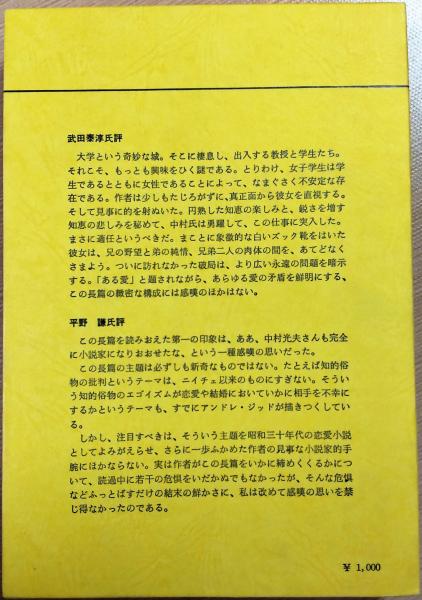 武田泰淳氏評
大学という奇妙な城。そこに棲息し、出入する教授と学生たち。
それこそ、もっとも興味をひく謎である。とりわけ、女子学生は学
生であるとともに女性であることによって、なまぐさく不安定な存
在である。作者は少しもたじろがずに、真正面から彼女を直視する。
そして見事に的を射ぬいた。円熟した知恵の楽しみと、鋭さを増す
知恵の悲しみを秘めて、中村氏は勇躍して、この仕事に突入した。
まさに適任というべきだ。まことに象徴的な白いズック靴をはいた
彼女は、兄の野望と弟の純情、兄弟二人の肉体の間を、あてどなく
さまよう。ついに訪れなかった破局は、より広い永遠の問題を暗示
する。「ある愛」と題されながら、あらゆる愛の矛盾を鮮明にする、
この長篇の緻密な構成には感嘆のほかはない。
平野 謙氏評
この長篇を読みおえた第一の印象は、ああ、中村光夫さんも完全
に小説家になりおおせたな、という一種感嘆の思いだった。
この長篇の主題は必ずしも新奇なものではない。たとえば知的俗
物の批判というテーマは、ニイチェ以来のものにすぎない。そうい
う知的俗物のエゴイズムが恋愛や結婚においていかに相手を不幸に
するかというテーマも、すでにアンドレ・ジッドが描きつくしてい
る。
しかし、注目すべきは、そういう主題を昭和三十年代の恋愛小説
としてよみがえらせ、さらに一歩ふかめた作者の見事な小説家的手
腕にほかならない。実は作者がこの長篇をいかに締めくくるかにつ
いて、読過中に若干の危惧をいだかぬでもなかったが、そんな危惧
などふっとばすだけの結末の鮮かさに、私は改めて感嘆の思いを禁
じ得なかったのである。
¥ 1,000